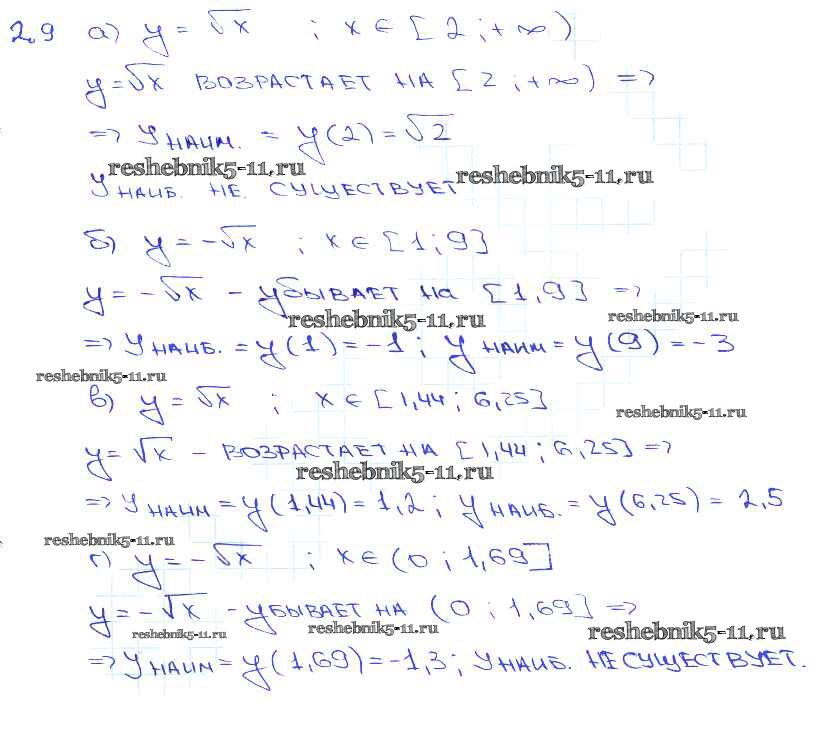 2.9 а) y = √x ; x ∈ [2 ; +∞)
y = √x ВОЗРАСТАЕТ НА [2 ; +∞) =>
=> У НАИМ. = y(2) = √2
reshebnik5-11.ru
reshebnik5-11.ru
У НАИБ. НЕ. СУЩЕСТВУЕТ
б) y = -√x ; x ∈ [1 ; 9]
y = -√x - УБЫВАЕТ НА [1, 9] =>
reshebnik5-11.ru
reshebnik5-11.ru
=> У НАИБ. = y(1) = -1 ; У НАИМ = y(9) = -3
reshebnik5-11.ru
в) y = √x ; x ∈ [1,44 ; 6,25]
reshebnik5-11.ru
y = √x - ВОЗРАСТАЕТ НА [1,44 ; 6,25] =>
reshebnik5-11.ru
=> У НАИМ = y(1,44) = 1,2 ; У НАИБ. = y(6,25) = 2,5
reshebnik5-11.ru
г) y = -√x ; x ∈ (0 ; 1,69]
y = -√x - УБЫВАЕТ НА (0 ; 1,69] =>
reshebnik5-11.ru
reshebnik5-11.ru
reshebnik5-11.ru
=> У НАИМ = y(1,69) = -1,3 ; У НАИБ. НЕ СУЩЕСТВУЕТ.